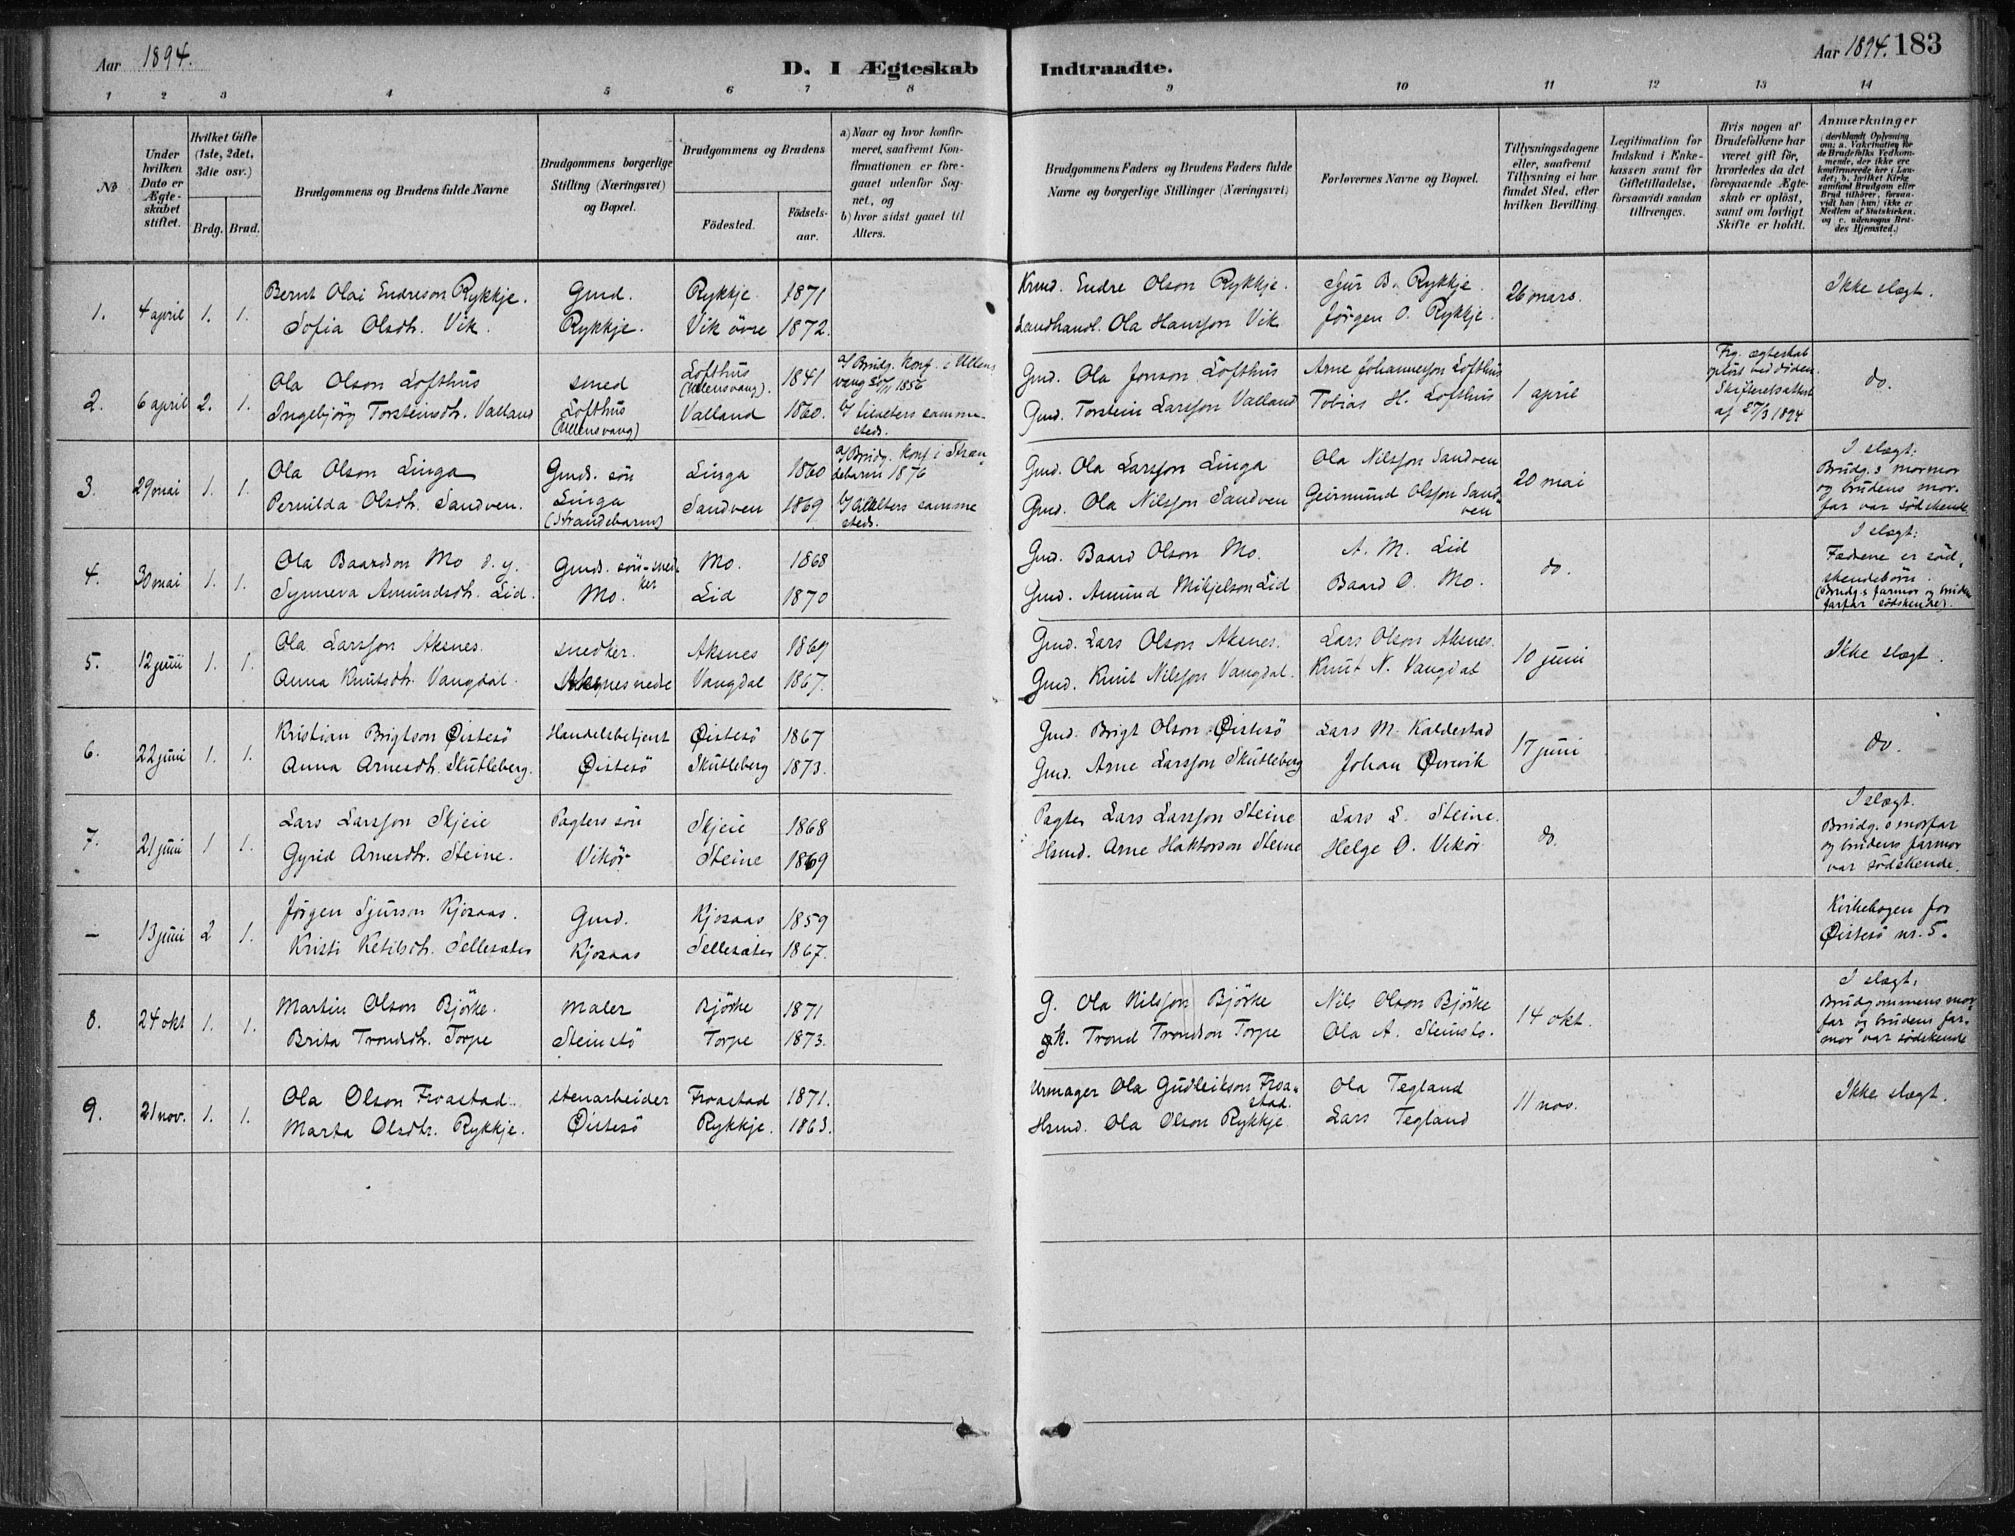 Aar 1894.
D. I Ægteskab Indtraadte.
Aar 1894. 183
1 2 3 4 5 6 7 8 9 10 11 12 13 14
No
Under hvilken Dato er Ægteskabet stiftet.
Hvilket Gifte (1ste, 2det, 3die osv.)
Brdg. Brud.
Brudgommens og Brudens fulde Navne
Brudgommens borgerlige Stilling (Næringsvei) og Bopæl.
Brudgommens og Brudens
Födested.
Födsels-aar.
a) Naar og hvor konfirmeret, saafremt Konfirmationen er foregaaet udenfor Sognet, og
b) hvor sidst gaaet til Alters.
Brudgommens Faders og Brudens Faders fulde Navne og borgerlige Stillinger (Næringsvei)
Forlovernes Navne og Bopæl.
Tillysningsdagene eller, saafremt Tillysning ei har fundet Sted, efter hvilken Bevilling
Legitimation for Indskud i Enkekassen samt for Giftetilladelse, forsaavidt saadan tiltrænges.
Hvis nogen af Brudefolkene har været gift för, hvorledes da det foregaaende Ægteskab er oplöst, samt om lovligt Skifte er holdt.
Anmærkninger
(deriblandt Oplysning om: a. Vakcination for de Brudefolks Vedkommende, der ikke ere konfirmerede her i Landet; b. hvilket Kirkesamfund Brudgom eller Brud tilhörer, forsaavidt han (hun) ikke er Medlem af Statskirken. og c. udensogns Brudes Hjemsted.)
1. 4 april 1. 1. Bernt Olai Endreson Rykkje. Gmd. Rykkje 1871 Krmd. Endre Olson Rykkje. Sjur B. Rykkje 26 mars. Ikke slægt.
Sofia Olsdtr. Vik. Rykkje. Vik övre 1872. Landhandl. Ola Hansson Vik Jörgen O. Rykkje.
2. 6 april 2. 1. Ola Olson Lofthus smed Lofthus (Ullensvang). 1841 a/ Brudg. konf. i Ullensvang 1856 Gmd. Ola Jonson Lofthus Arne Johannesson Lofthus 1 april Frg. ægteskab oplöst ved döden. Skifteretsattest af 27/3 1894 do.
Ingebjörg Torsteinsdtr. Valland Lofthus (Ullensvang) Valland 1860. samme-steds. Gmd. Torstein Larsson Valland Tobias H. Lofthus
3. 29 mai 1. 1. Ola Olson Linga Gmds. sön Linga 1860 a/ Brudg. konf i Strandebarm 1876 Gmd. Ola Larsson Linga Ola Nilsson Sandven 20 mai I slægt: Brudg.s mormor og brudens morfar var södskende.
Pernilda Olsdtr. Sandven. Linga (Strandebarm) Sandven 1869 alters samme steds. Gmd. Ola Nilsson Sandven Geirmund Olsson Sandven
4. 30 mai 1. 1. Ola Baardson Mo d. y. Gmds. sön - snedker Mo. 1868 Gmd. Baard Olson Mo. A. M. Lid do. I slægt: Fædrene er södskendebörn. (Brudg.s farmor og brudens farfar södskende).
Synneva Amundsdtr. Lid. Mo. Lid 1870 Gmd. Amund Mikjelson Lid Baard O. Mo.
5. 12 juni 1. 1. Ola Larsson Aksnes. snedker. Aksnes 1869 Gmd. Lars Olson Aksnes. Lars Olson Aksnes. 10 juni Ikke slægt.
Anna Knutsdtr. Vangdal. Aksnes nedre Vangdal 1867. Gmd. Knut Nilsson Vangdal. Knut N. Vangdal
6. 22 juni 1. 1. Kristian Brigtson Øistesö Handelsbetjent Øistesö 1867 Gmd. Brigt Olson Øistesö Lars M. Kaldestad 17 juni do.
Anna Arnesdtr. Skutleberg. Øistesö Skutleberg 1873. Gmd. Arne Larsson Skutleberg Johan Øvrevik
7. 21 juni 1 1. Lars Larsson Skjeie Pagters sön Skjeie 1868 Pagter Lars Larsson Steine Lars L. Steine. do. I slægt. Brudg.s morfar og brudens farmor var södskende.
Gyrid Arnesdtr. Steine. Vikör Steine 1869 Hsmd. Arne Haktorson Steine Helge O. Vikör
— 13 juni 2 1. Jörgen Sjurson Kjosaas. Gmd. Kjosaas 1859 Kirkebogen for Øistesö nr. 5.
Kristi Ketilsdtr. Sellesæter Kjosaas Sellesæter 1867.
8. 24 okt 1. 1. Martin Olson Bjørke. maler Bjørke 1871 G. Ola Nilsson Bjørke Nils Olson Bjørke 14 okt. I slægt. Brudgommens morfar og brudens farmor var södskende
Brita Trondsdtr. Torpe Steinstö Torpe 1873. gk. Trond Trondson Torpe Ola A. Steinstö.
9. 21 nov. 1. 1. Ola Olson Froastad. stenarbeider Froastad 1871. Urmager Ola Gudleikson Froastad. Ola Tegland 11 nov. Ikke slægt.
Marta Olsdtr. Rykkje. Øistesö Rykkje. 1863. Hsmd. Ola Olson Rykkje Lars Tegland